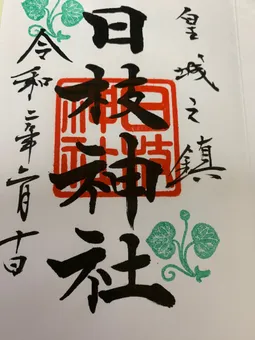 皇城之鎮
日枝神社
日枝神社
令和二年六月十日